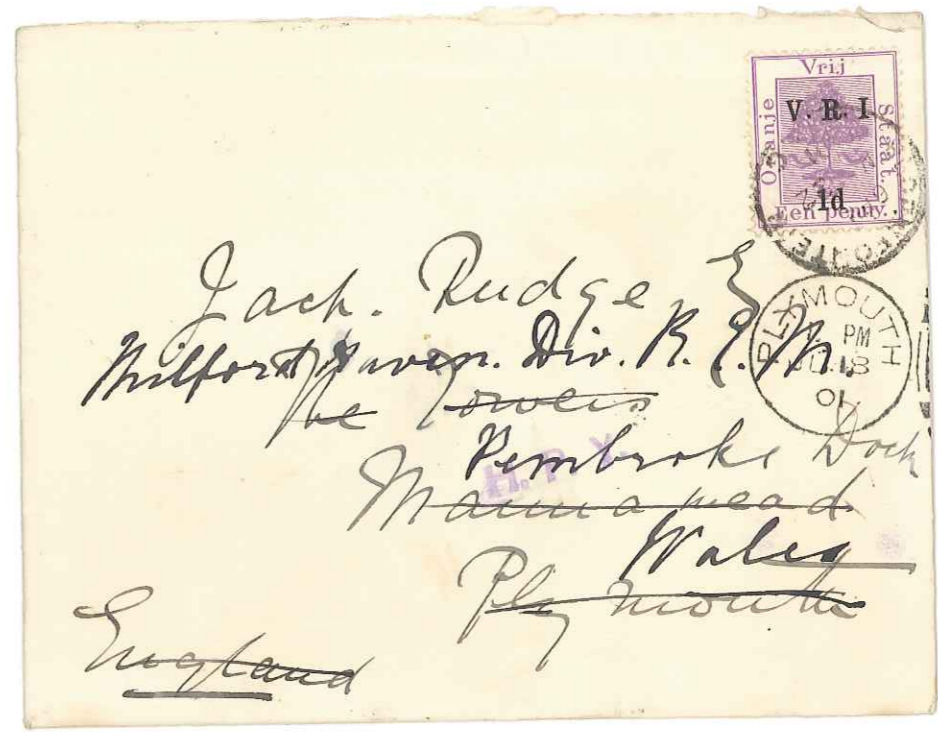 Vrij
Oranje
Staat.
V. R. I
1d
Een penny.
PLYMOUTH
PM
18
01
Jack. Rudge, E
Milford Haven. Div. R. E. M.
The Towers
Pembroke Dock
H. P. X.
Mannamead
Wales
Plymouth
England